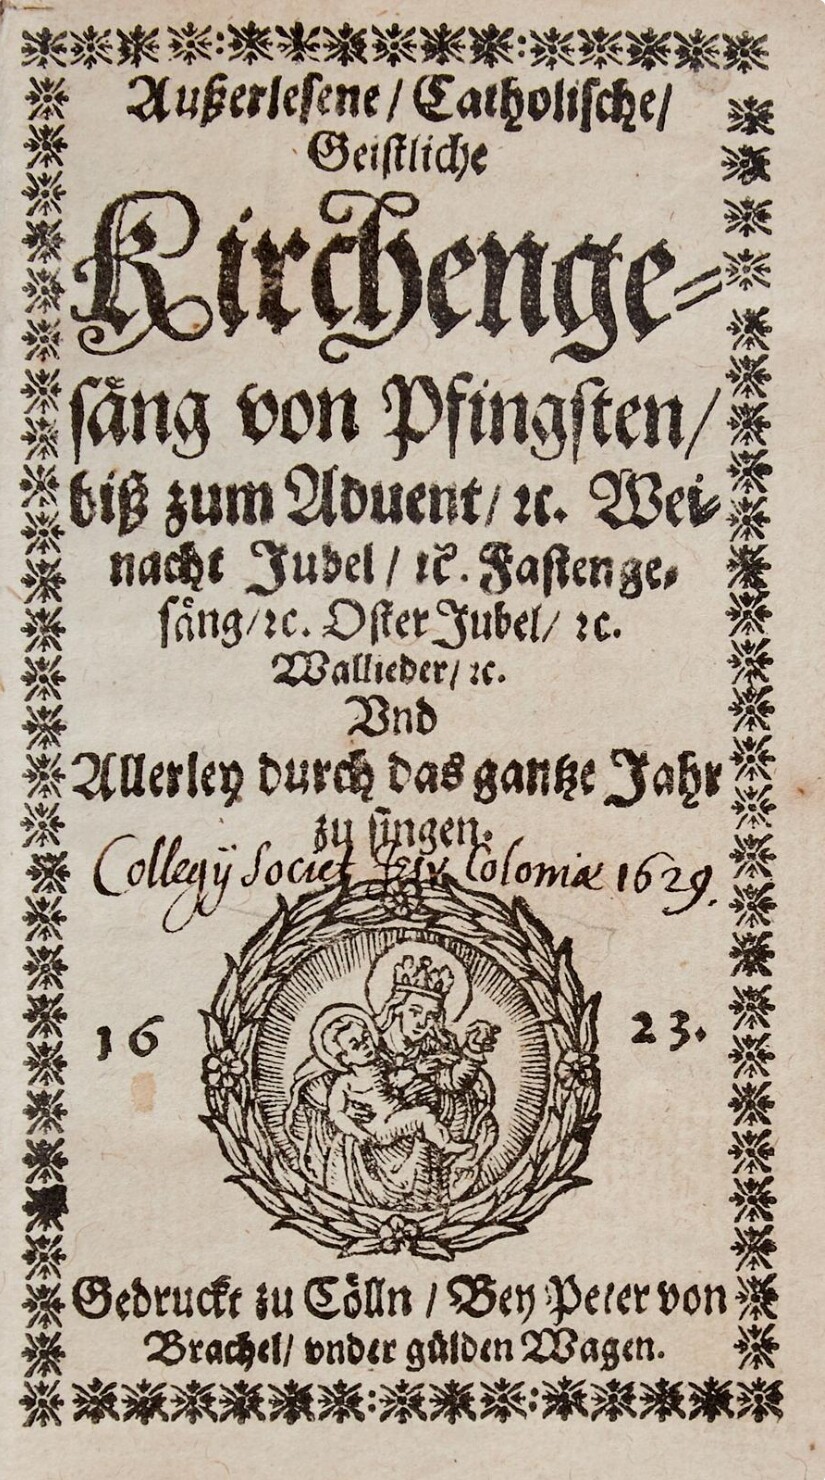 Außerlesene / Catholische /
Geistliche
Kirchenge=
säng von Pfingsten /
biß zum Aduent / ꝛc. Wei⸗
nacht Jubel / ꝛc. Fastenge⸗
säng / ꝛc. Oster Jubel / ꝛc.
Wallieder / ꝛc.
Vnd
Allerley durch das gantze Jahr
zu singen.
Collegij Societ. Jesu Coloniæ 1629.
16 23.
Gedruckt zu Cölln / Bey Peter von
Brachel / vnder gülden Wagen.